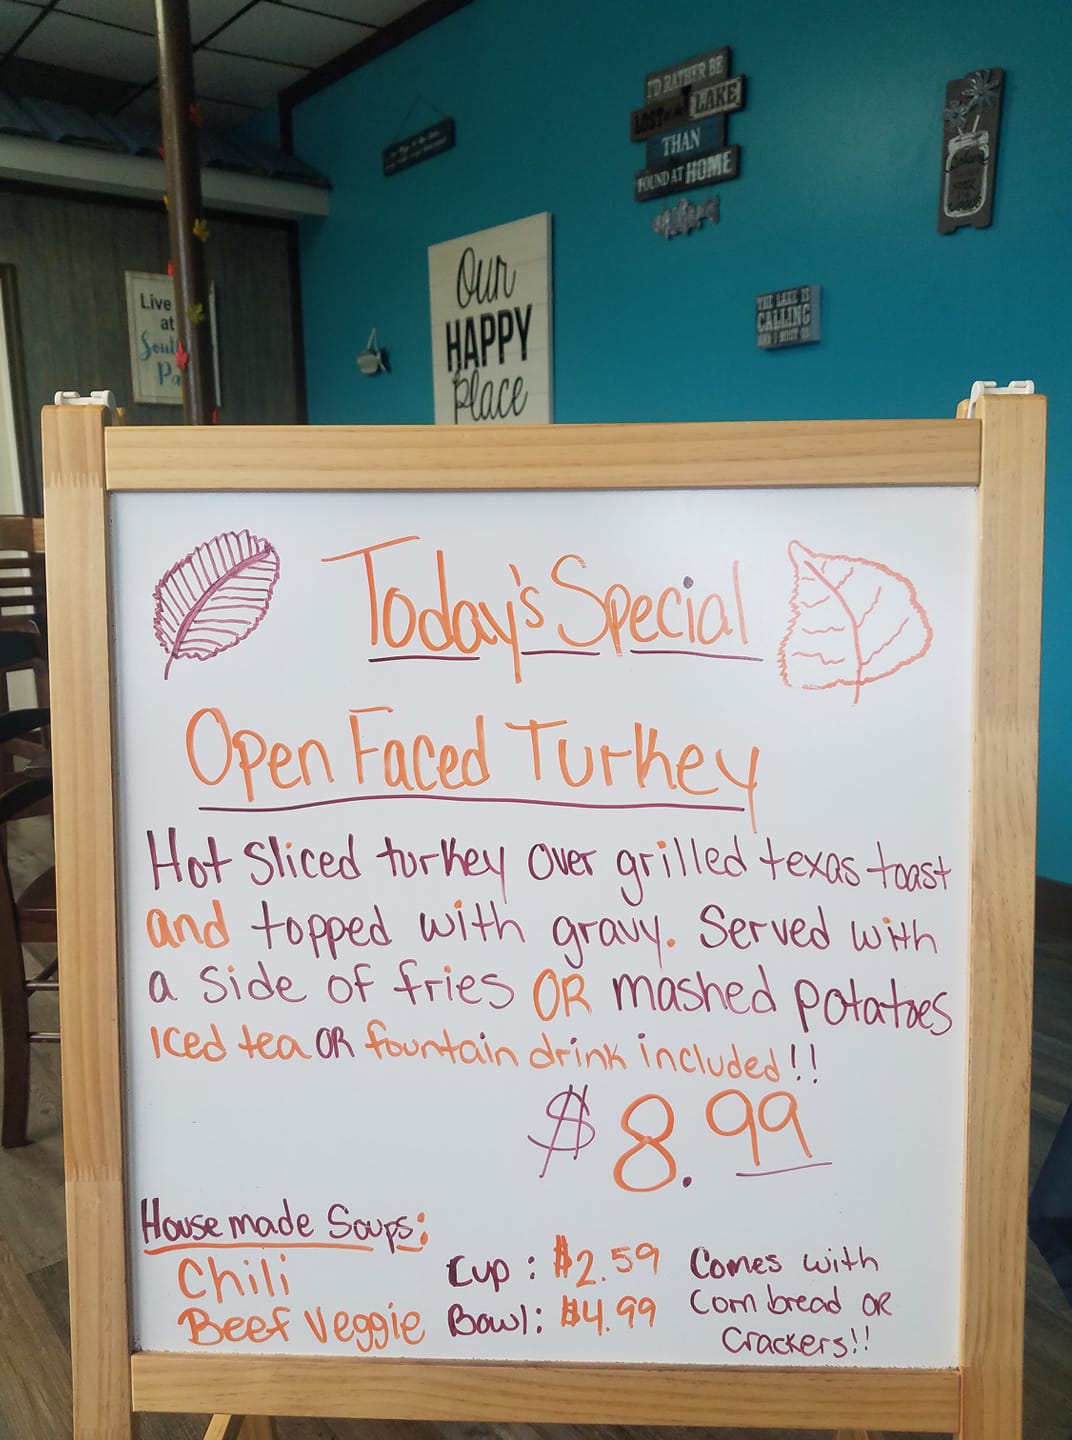 I'D RATHER BE
LOST AT THE LAKE
THAN
FOUND AT HOME
Our
HAPPY
Place
THE LAKE IS
CALLING
AND I MUST GO
Live
at
Sout
Pa
Today's Special
Open Faced Turkey
Hot sliced turkey over grilled texas toast
and topped with gravy. Served with
a side of fries OR mashed potatoes
Iced tea OR fountain drink included!!
$8.99
House made Soups:
Chili Cup: $2.59 Comes with
Beef Veggie Bowl: $4.99 Corn bread OR
Crackers!!